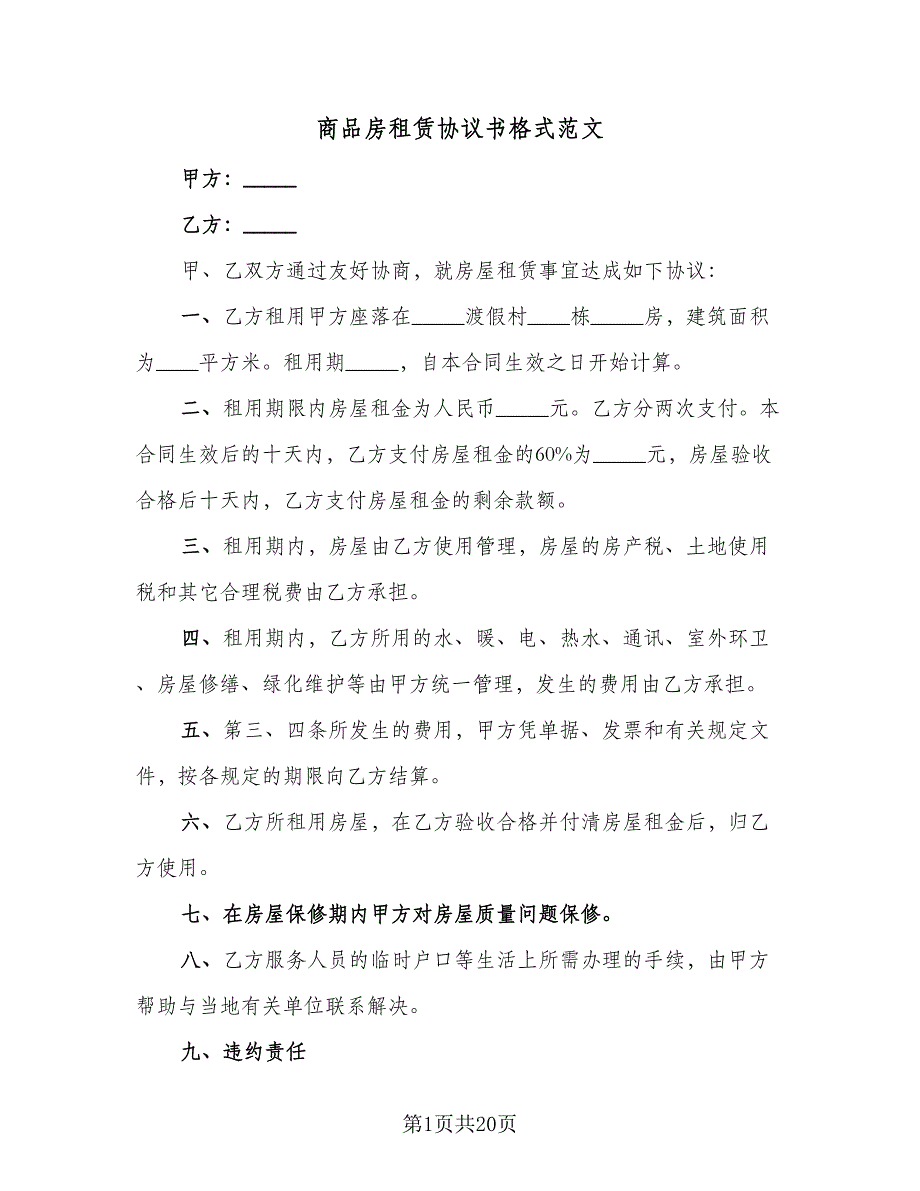 商品房租赁协议书格式范文
甲方：_____
乙方：_____
甲、乙双方通过友好协商，就房屋租赁事宜达成如下协议：
一、乙方租用甲方座落在_____渡假村____栋_____房，建筑面积
为____平方米。租用期_____，自本合同生效之日开始计算。
二、租用期限内房屋租金为人民币_____元。乙方分两次支付。本
合同生效后的十天内，乙方支付房屋租金的60%为_____元，房屋验收
合格后十天内，乙方支付房屋租金的剩余款额。
三、租用期内，房屋由乙方使用管理，房屋的房产税、土地使用
税和其它合理税费由乙方承担。
四、租用期内，乙方所用的水、暖、电、热水、通讯、室外环卫
、房屋修缮、绿化维护等由甲方统一管理，发生的费用由乙方承担。
五、第三、四条所发生的费用，甲方凭单据、发票和有关规定文
件，按各规定的期限向乙方结算。
六、乙方所租用房屋，在乙方验收合格并付清房屋租金后，归乙
方使用。
七、在房屋保修期内甲方对房屋质量问题保修。
八、乙方服务人员的临时户口等生活上所需办理的手续，由甲方
帮助与当地有关单位联系解决。
九、违约责任
第1页共20页